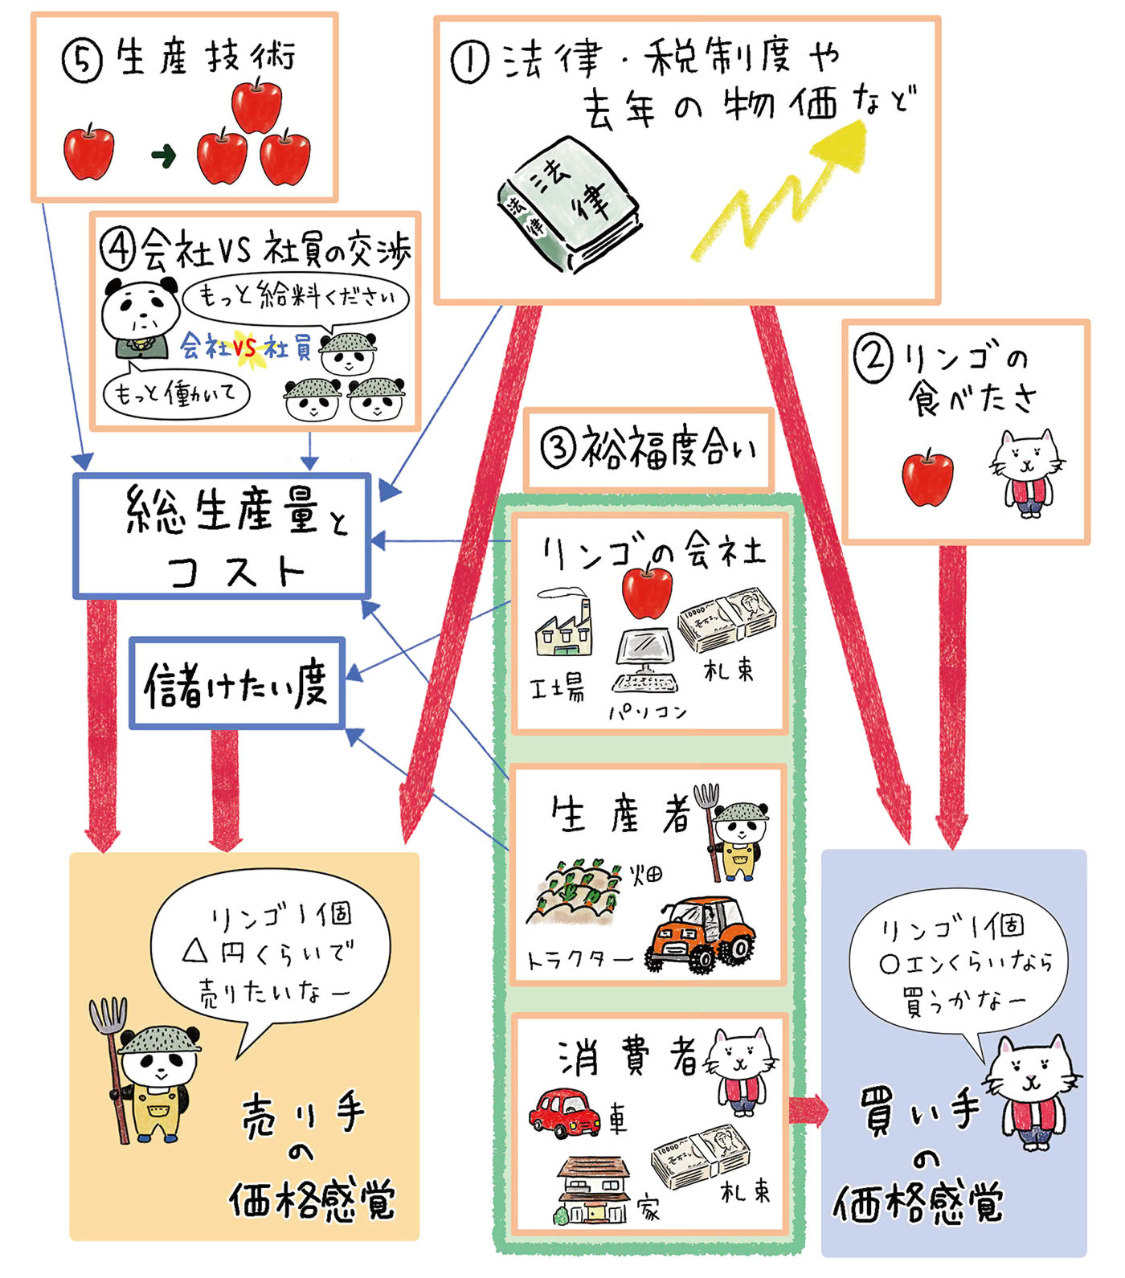 ⑤生産技術
①法律・税制度や
去年の物価など
法律
法律
④会社VS社員の交渉
もっと給料ください
会社VS社員
もっと働いて
②リンゴの
食べたさ
③裕福度合い
総生産量と
コスト
リンゴの会社
工場
パソコン
札束
儲けたい度
生産者
畑
トラクター
リンゴ1個
△円くらいで
売りたいなー
売り手
の
価格感覚
消費者
車
札束
家
リンゴ1個
○エンくらいなら
買うかなー
買い手
の
価格感覚